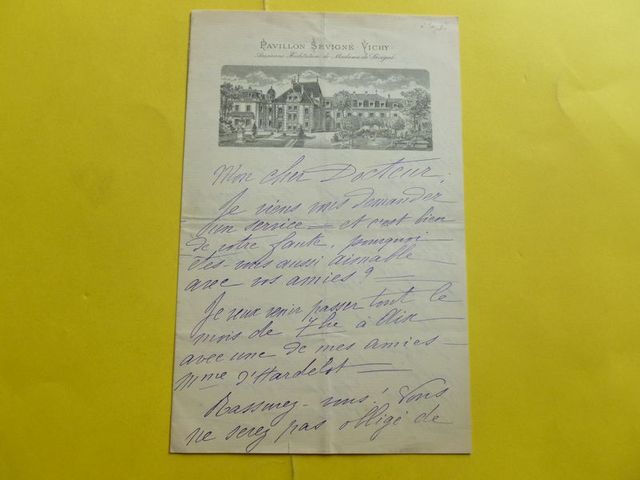 PAVILLON SÉVIGNÉ VICHY
Ancienne Habitation de Madame de Sévigné
Mon cher Docteur,
Je viens vous demander
un service — et c'est bien
de votre faute, pourquoi
êtes-vous aussi aimable
avec vos amies ? —
Je veux venir passer tout le
mois de 7bre à Aix
avec une de mes amies —
Mme d'Hardelot —
Rassurez-vous ! Vous
ne serez pas obligé de